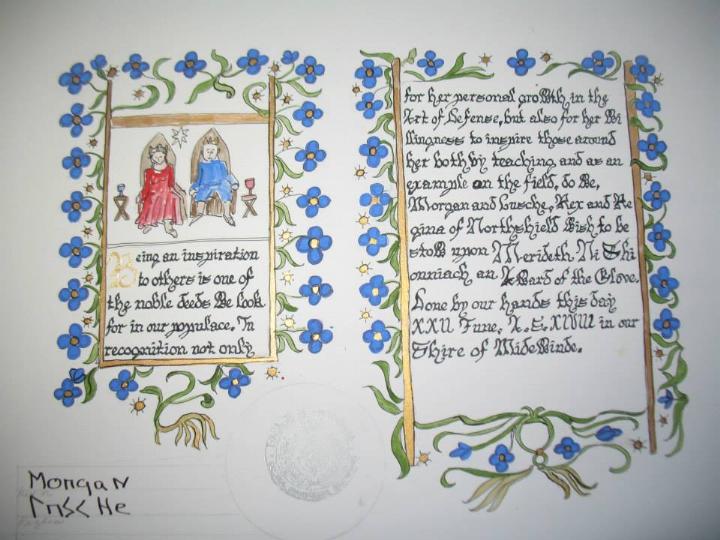 Being an inspiration
to others is one of
the noble deeds We look
for in our populace. In
recognition not only
for her personal growth in the
Art of Defense, but also for her Wi
llingness to inspire those around
her both by teaching and as an
example on the field, do We,
Morgan and Lusche, Rex and Re
gina of Northshield Wish to be
stow upon Merideth Ni Shi
onniach an Award of the Glove.
Done by our hands this day
XXII June, A.S. in our
Shire of MideWinde.
Morgan
Lusche